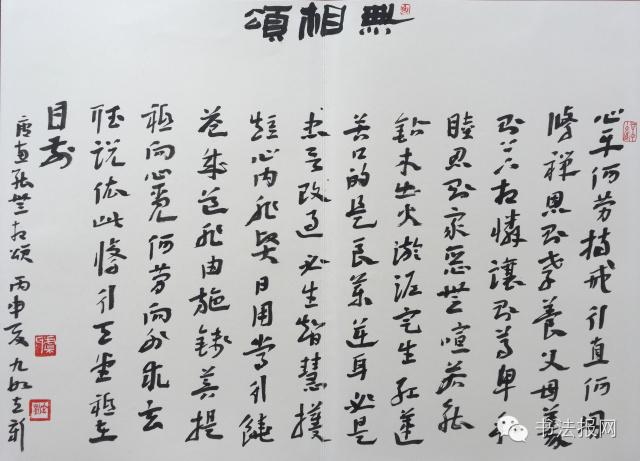 無相頌
心平何勞持戒行直何用
修禪恩則孝養父母義
則上下相憐讓則尊卑和
睦忍則眾惡無喧若能
鉆木出火淤泥定生紅蓮
苦口的是良藥逆耳必是
忠言改過必生智慧護
短心內非賢日用常行饒
益成道非由施錢菩提
祗向心覓何勞向外求玄
聽說依此修行天堂祗在
目前
唐惠能無相頌 丙申夏 九如立新
书法报网